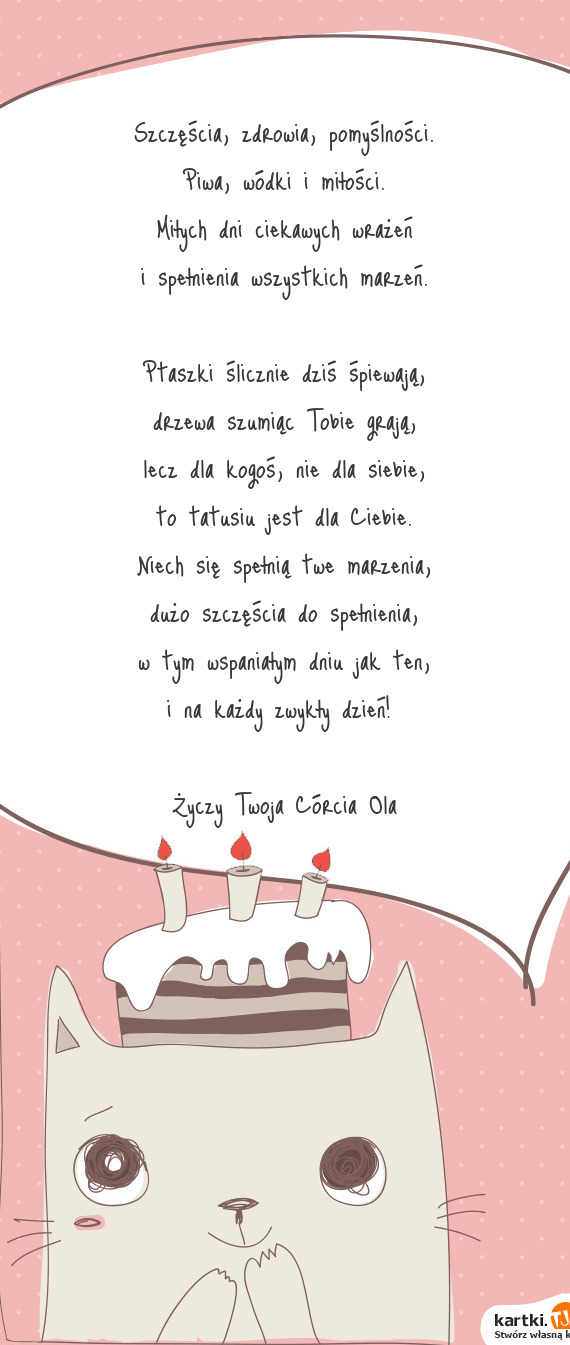 Szczęścia, zdrowia, pomyślności.
Piwa, wódki i miłości.
Miłych dni ciekawych wrażeń
i spełnienia wszystkich marzeń.
Ptaszki ślicznie dziś śpiewają,
drzewa szumiąc Tobie grają,
lecz dla kogoś, nie dla siebie,
to tatusiu jest dla Ciebie.
Niech się spełnią twe marzenia,
dużo szczęścia do spełnienia,
w tym wspaniałym dniu jak ten,
i na każdy zwykły dzień!
Życzy Twoja Córcia Ola
kartki.TJ
Stwórz własną k